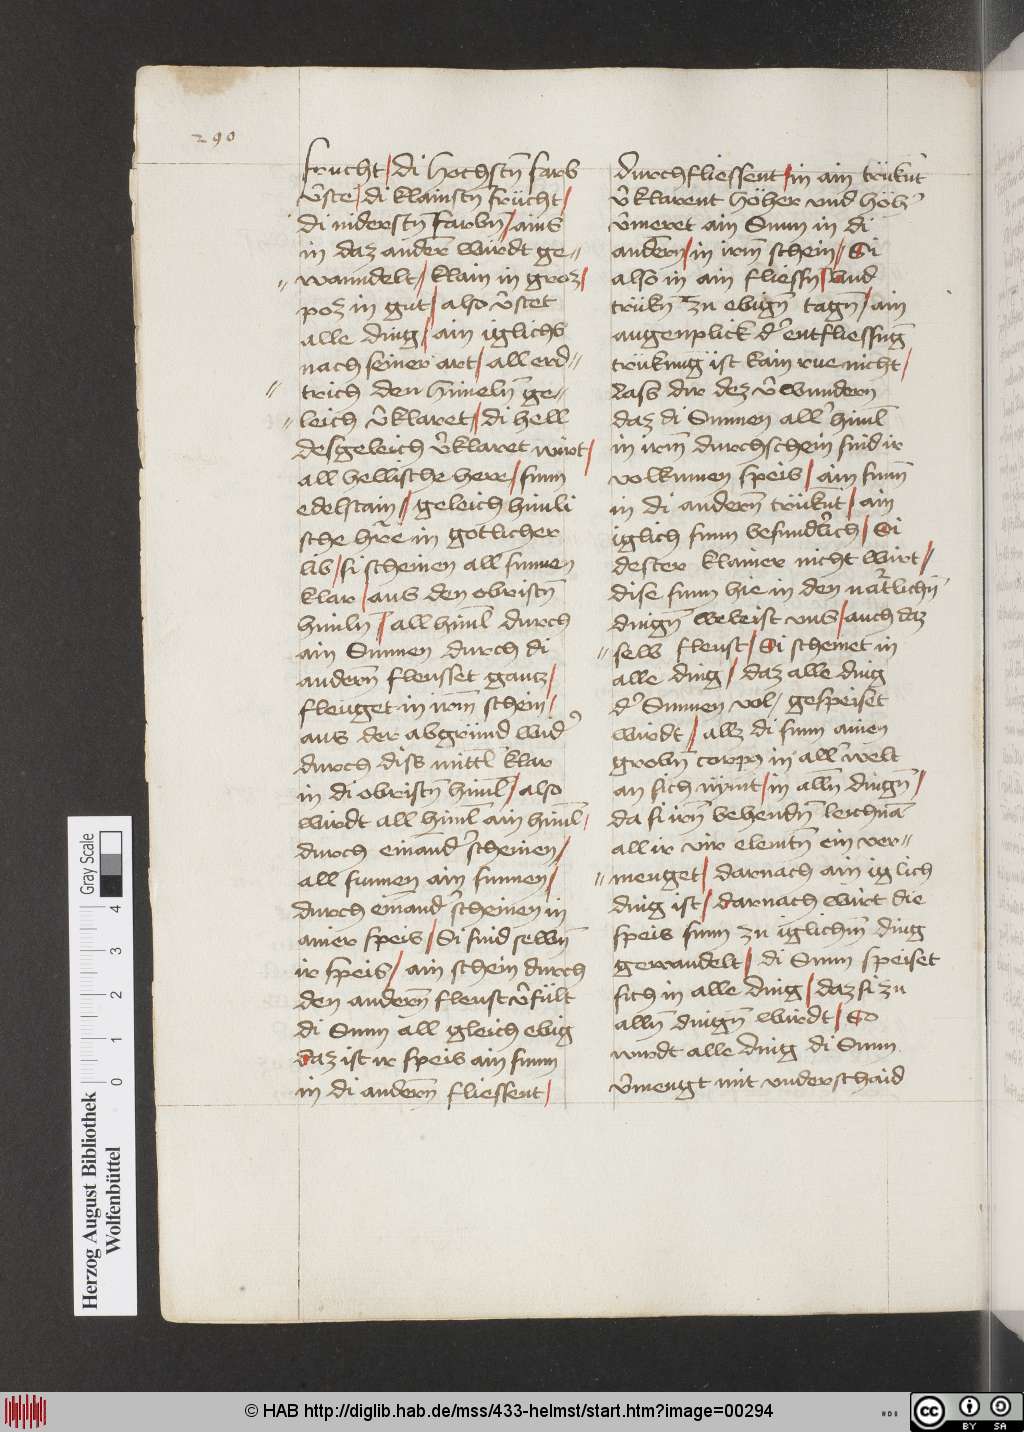 290
frucht / di hochstn̄ farb
v̓ste / di klainstn frücht /
di niderstn̄ farbn̄ / ains
in daz ander wirdt ge=
wanndelt / klain in groz /
poz in gut / also v̓stet
alle ding / ain iglichs
nach seiner art / all erd=
trich den himeln̄ ge=
leich v̓klaret / di hell
desgeleich v̓klaret wirt /
all hellische herr / sunn
edelstain / geleich himli
sche hr̄e in gotlicher
lib / si scheinen all sunnen
klar / aus den obristn̄
himln̄ / all himl̄ durch
ain Sunnen durch di
andern̄ fleusset gantz /
fleuget in irm̄ schein /
aus der abgrund wid̓
durch diss mittl̄ klar
in di obristn̄ himl̄ / also
wirdt all himl̄ ain himl̄ /
durch einand̓ scheinen /
all sunnen ain sunnen /
durch einand̓ scheinen in
ainer speis / Si sind selbn̄
ir speis / ain schein durch
den andern̄ fleust v̓fült
di Sunn all gleich ebig
daz ist ir speis ain sunn
in di andern̄ fliessent /
durchfliessent / in ain trükn̄t
v̓klarent höher vnd höh̓
v̓meret ain Sunn in di
andern / in irm̄ schein / Si
also in ain fliessn̄ / vnd
trükn̄ zu ebign̄ tagn̄ / ain
augenplick d̓ entfliessūg
trükūg ist kain rue nicht /
Lass dir dez v̓wundern
daz di Sunnen all̓ himl̄
in irm̄ durchschein sind ir
volkumen speis / ain sunn̄
in di andern̄ trükn̄t / ain
iglich sunn besundlich / Si
dester klainer nicht wirt /
dise sunn hie in den natr̄lichn̄
dingn̄ beweist vns / auch daz
selb fleust / Si scheinet in
alle ding / daz alle ding
d̓ Sunnen vol / gespeiset
wirdt / allz di sunn ainen
grobn̄ corpɔ in all̓ welt
an sich nȳmt / in alln̄ dingn̄ /
da si irn̄ behendn̄ leichnā
all ir vir elemtn̄ ein ver=
menget / darnach ain iglich
ding ist / darnach wirt die
speis sunn zu iglichm̄ ding
gewandelt / di Sunn speiset
sich in alle ding / daz si zu
alln̄ dingn̄ wirdt / So
wirdt alle ding di Sunn
v̓mengt mit vnderschaid
Herzog August Bibliothek
Wolfenbüttel
0 1 2 3 4
Gray Scale
© HAB http://diglib.hab.de/mss/433-helmst/start.htm?image=00294
cc
BY SA